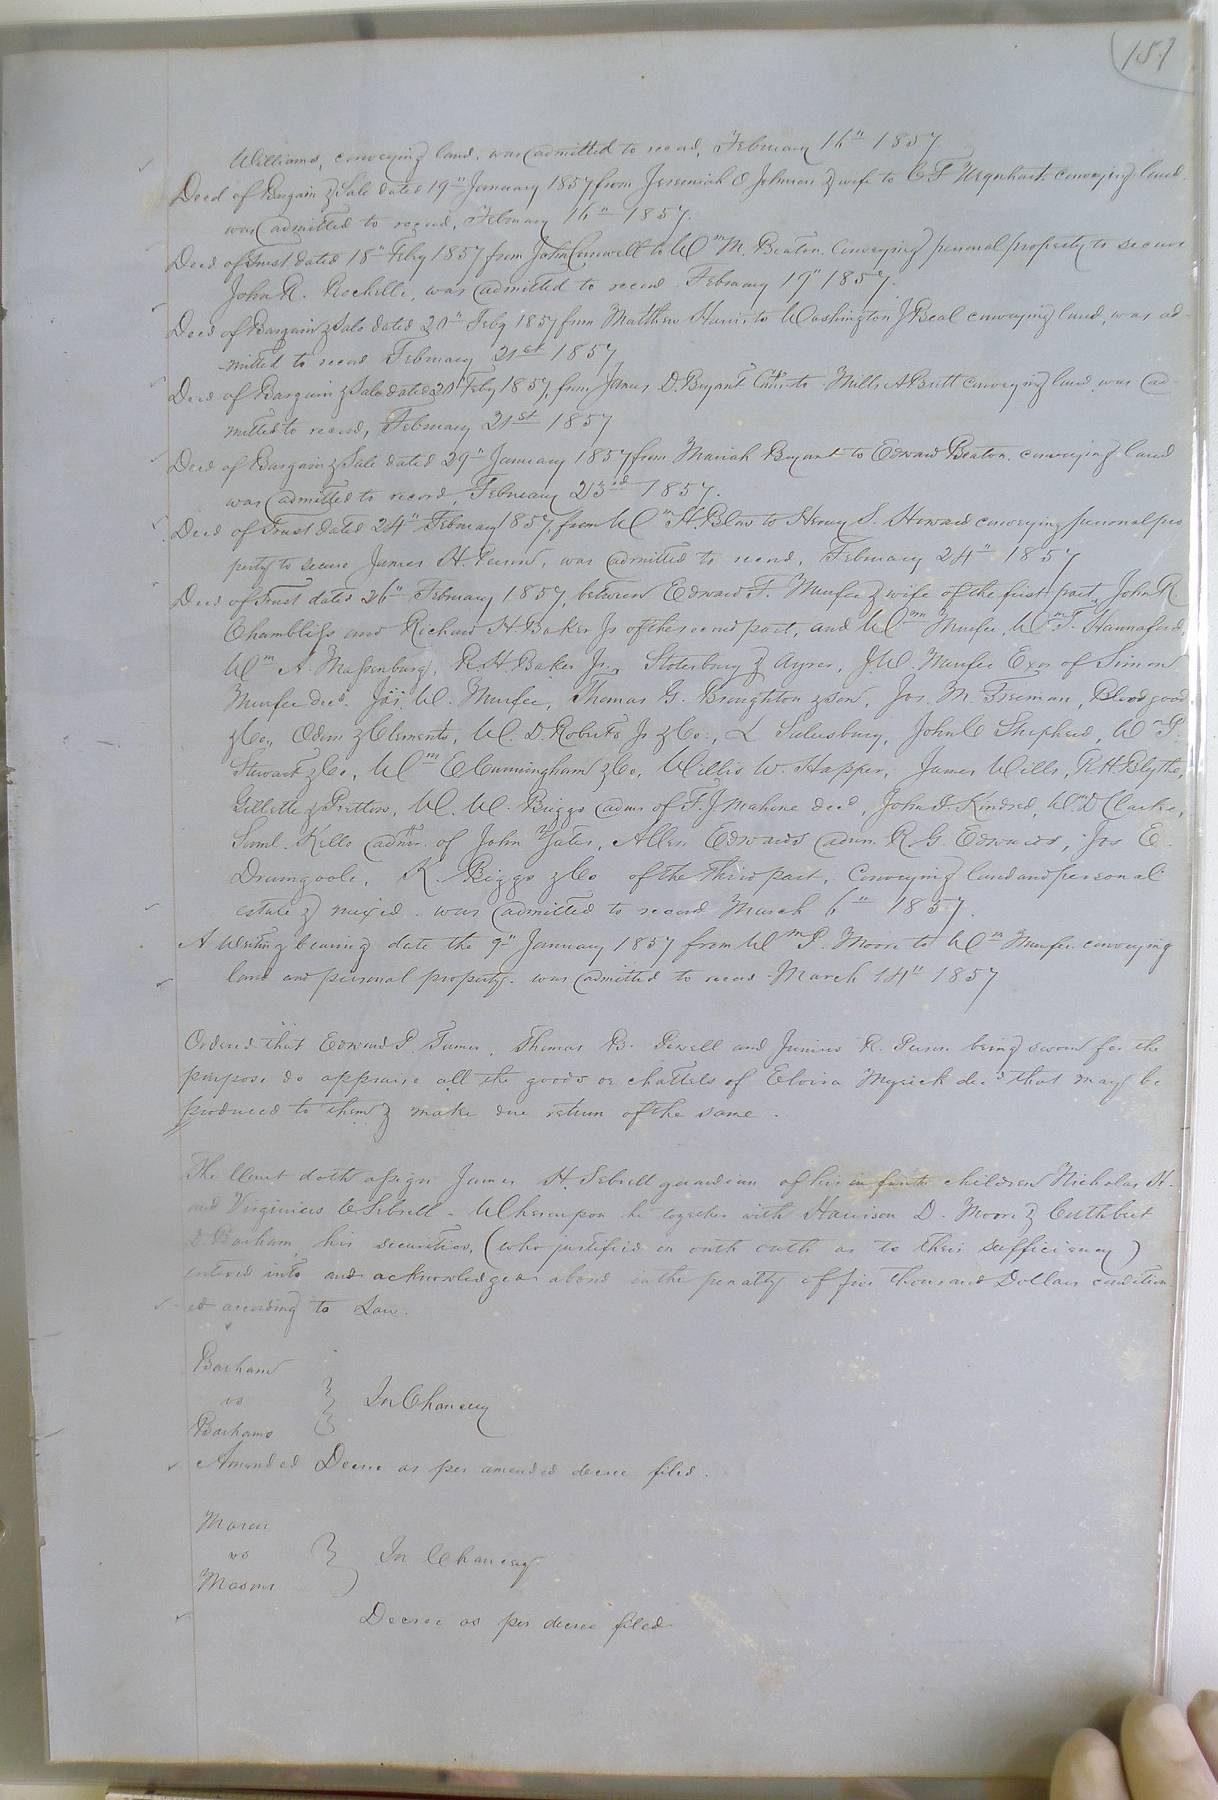 157
Williams, conveying land, was admitted to record, February 16" 1857.
Deed of Bargain & Sale dated 19" January 1857 from Jeremiah & Johnson & wife to C F Urquhart conveying land.
was admitted to record, February 16" 1857.
Deed of Trust dated 18" Feby 1857 from John to Wm M. Beaton, conveying personal property to secure
John R. Rochelle, was admitted to record February 19" 1857.
Deed of Bargain & Sale dated 20" Feby 1857 from Matthew Harris to Washington J Beal conveying land, was ad-
mitted to record February 21st 1857
Deed of Bargain & Sale dated 20" Feby 1857, from James D Bryant to Mills A Britt conveying land was ad-
mitted to record, February 21st 1857
Deed of Bargain & Sale dated 29" January 1857 from Mariah Bryant to Edward Beaton, conveying land
was admitted to record, February 23rd 1857.
Deed of Trust dated 24" February 1857, from Wm H Blow to Henry S. Howard conveying personal pro
perty to secure James H. Person, was admitted to record, February 24" 1857
Deed of Trust dated 26" February 1857, between Edward F. Murfee & wife of the first part, John R
Chambliss and Richard H Baker Jr of the second part, and Wm Murfee, Wm T. Hannaford,
Wm A. Massenburg, R H Baker Jr., Stotesbury & Ayres, J. W. Murfee Exor of Simon
Murfee decd. Jas. W. Murfee, Thomas G. Broughton & Son, Jos. M. Freeman, Bloodgood
& Co., Odom & Clements, W. D. Roberts Jr & Co., L Salusbury, John C Shepherd, Wm S.
Stewart & Co, Wm E Cunningham & Co, Willis W. Harper, James Wills, R H Blythe,
Gillette & Pretlow, W. W. Briggs admr of F. J Mahone decd, John J. Kindred, Wm D Clarke,
Saml. Kello admr. of John Yates, Allen Edwards admr R. G. Edwards, Jos E.
Drumgoole, R. Biggs & Co of the third part, conveying land and personal
estate & mixed. was admitted to record March 6" 1857.
A Writing bearing date the 9" January 1857 from Wm P. Moore to Wm Murfee conveying
land and personal property. was admitted to record March 14" 1857
Ordered that Edward P. Turner, Thomas B. Sewell and Junius R. Person being sworn for the
purpose do appraise all the goods or chattels of Elvira Myrick decd that may be
produced to them & make due return of the same.
The Court doth assign James H. Sebrell guardian of his infants children Nicholas H.
and Virginius C Sebrell - Whereupon he together with Harrison D. Moore & Cuthbert
D Barham, his securities, (who justified on oath oath as to their sufficiency)
entered into and acknowledged abond in the penalty of five thousand Dollars condition
ed according to Law.
Barham
vs } In Chancery
Barhams
Amended Decree as per amended decree filed.
Mason
vs } In Chancery
Masons
Decree as per decree filed